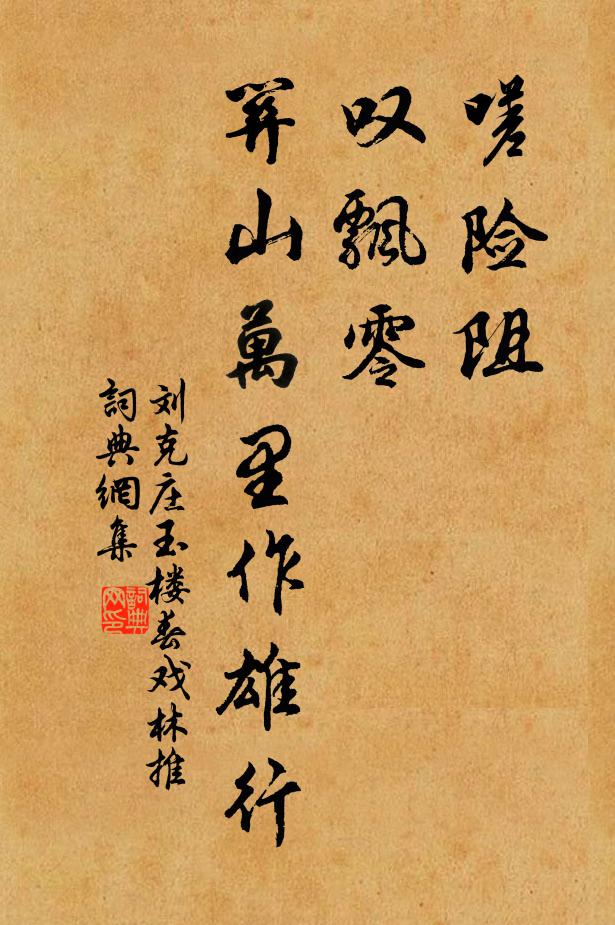 嗟险阻
叹飄零
關山萬里作雄行
刘克庄玉楼春戏林推
詞典網集
詞典网印